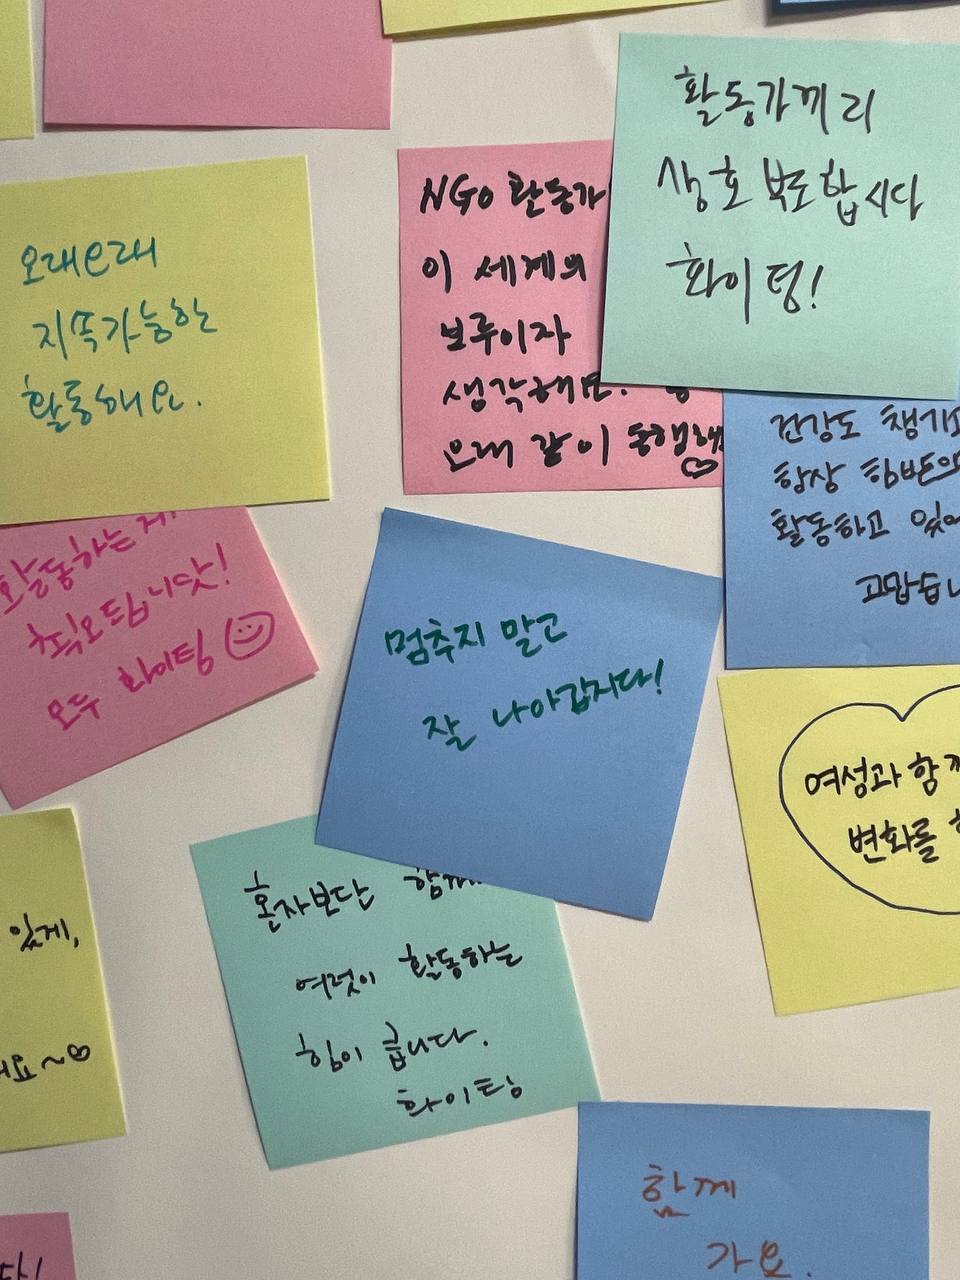 활동가끼리
상호 복도합시다
화이팅!
NGO 활동가
이 세계의
보루이자
생각해요.
오래 같이 동행해
오래오래
지속가능한
활동해요.
건강도 챙기고
항상 힘받으
활동하고 있어
고맙습니
활동하는게!
축복드립니닷!
모두 화이팅
멈추지 말고
잘 나아갑시다!
여성과 함께
변화를
혼자보단 함께
여럿이 활동하는
힘이 큽니다.
화이팅
있게,
해요~
함께
가요.